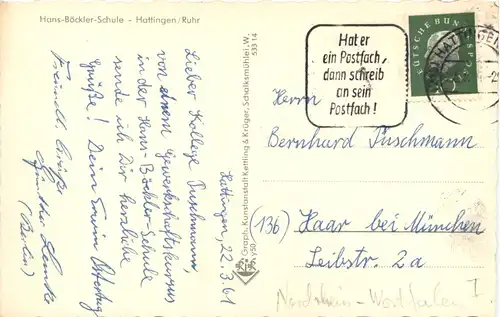 Hans-Böckler-Schule - Hattingen/Ruhr
Hattingen, 22.3.61
Lieber Kollege Puschmann,
von einem Gewerkschaftskursus
in der Hans-Böckler-Schule
sende ich Dir herzliche
Grüße! Dein Erwin
Freundl. Grüße
Günther
(Berlin)
Graph. Kunstanstalt Kettling & Krüger, Schalksmühle i. W.
533 14
Y50
Hat er
ein Postfach,
dann schreib
an sein
Postfach!
DEUTSCHE BUNDESPOST
HATTINGEN
Herrn
Bernhard Puschmann
(13b) Haar bei München
Leibstr. 2a
Nordrhein-Westfalen I.